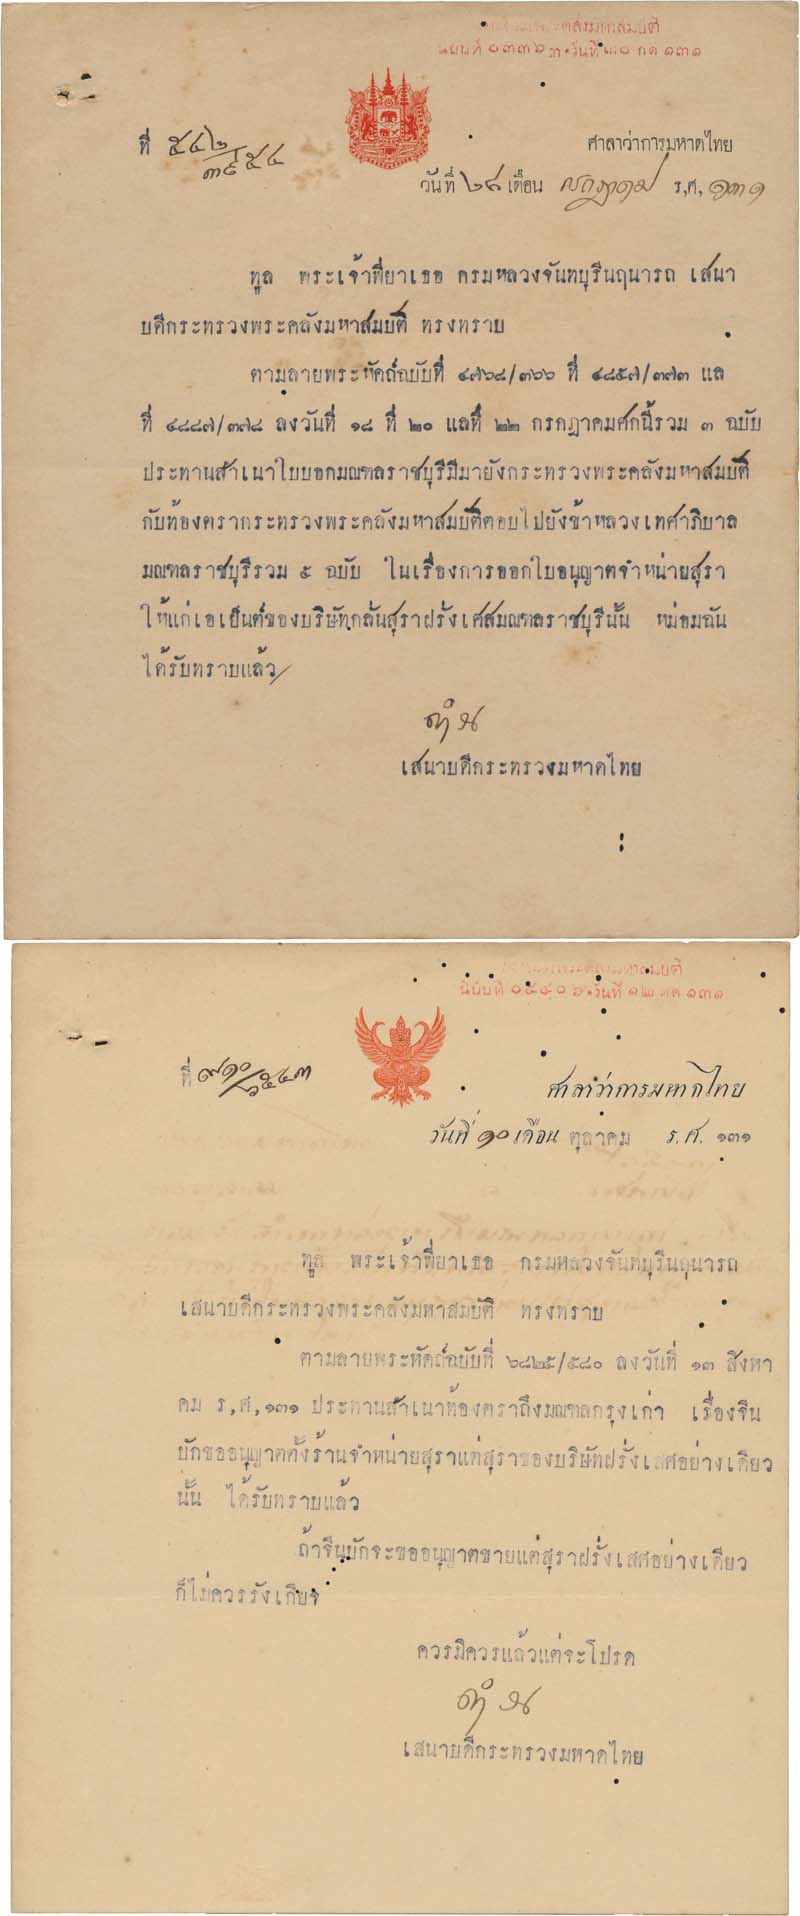 คลังมหาสมบัติ
นับที่ ๐๓๓๖๓ วันที่ ๓๐ กค ๑๓๑
ที่ ๕๔๒
ศาลาว่าการมหาดไทย
วันที่ ๒๘ เดือน กรกฎาคม ร,ศ, ๑๓๑
ทูล พระเจ้าพี่ยาเธอ กรมหลวงจันทบุรีนฤนารถ เสนา
บดีกระทรวงพระคลังมหาสมบัติ ทรงทราบ
ตามลายพระหัตถ์ฉบับที่ ๔๗๖๘/๓๖๖ ที่ ๔๘๕๗/๓๗๓ แล
ที่ ๔๘๘๗/๓๗๘ ลงวันที่ ๑๘ ที่ ๒๐ แลที่ ๒๒ กรกฎาคมศกนี้รวม ๓ ฉบับ
ประทานสำเนาใบบอกมณฑลราชบุรีมีมายังกระทรวงพระคลังมหาสมบัติ
กับท้องตรากระทรวงพระคลังมหาสมบัติตอบไปยังข้าหลวงเทศาภิบาล
มณฑลราชบุรีรวม ๕ ฉบับ ในเรื่องการออกใบอนุญาตจำหน่ายสุรา
ให้แก่เอเย็นต์ของบริษัทกลั่นสุราฝรั่งเศสมณฑลราชบุรีนั้น หม่อมฉัน
ได้รับทราบแล้ว
เสนาบดีกระทรวงมหาดไทย
พระคลังมหาสมบัติ
นับที่ ๐๕๔๐๖ วันที่ ๑๒ ตค ๑๓๑
ที่ ๙๑๐/๖๕๔๓
ศาลาว่าการมหาดไทย
วันที่ ๑๐ เดือน ตุลาคม ร.ศ. ๑๓๑
ทูล พระเจ้าพี่ยาเธอ กรมหลวงจันทบุรีนฤนารถ
เสนาบดีกระทรวงพระคลังมหาสมบัติ ทรงทราบ
ตามลายพระหัตถ์ฉบับที่ ๖๘๒๕/๕๘๐ ลงวันที่ ๑๓ สิงหา
คม ร,ศ,๑๓๑ ประทานสำเนาท้องตราถึงมณฑลกรุงเก่า เรื่องจีน
บักขออนุญาตตั้งร้านจำหน่ายสุราแต่สุราของบริษัทฝรั่งเศสอย่างเดียว
นั้น ได้รับทราบแล้ว
ถ้าจีนบักจะขออนุญาตขายแต่สุราฝรั่งเศสอย่างเดียว
ก็ไม่ควรรังเกียจ
ควรมิควรแล้วแต่จะโปรด
เสนาบดีกระทรวงมหาดไทย